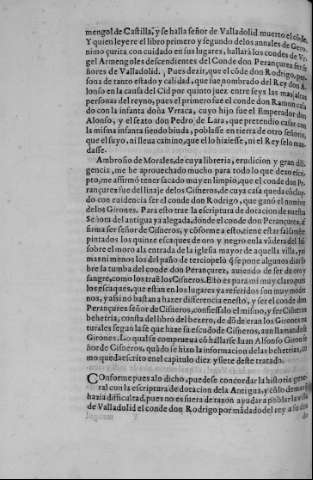 mengol de Castilla, y se halla señor de Valladolid muerto el cõde.
Y quien leyere el libro primero y segundo delos annales de Gero-
nimo çurita con cuidado en sus lugares, hallará los condes de Vr-
gel Armengoles descendientes del Conde don Perançurez ser se-
ñores de Valladolid. Pues dezir, que el cõde don Rodrigo, per-
sona de tanto estado y calidad, que fue nombrado del Rey don A-
lonso en la causa del Cid por quinto juez entre seys las mas altas
personas del reyno, pues el primero fue el conde don Ramon casa
do con la infanta doña Vrraca, cuyo hijo fue el Emperador don
Alonso, y el sexto don Pedro de Lara, que pretendio casar con
la misma infanta siendo biuda, poblasse en tierra de otro señorio,
que el suyo, ni lleua camino, que el lo hiziesse, ni el Rey selo man-
dasse.
Ambrosio de Morales, de cuya libreria, erudicion y gran dili-
gencia, me he aprouechado mucho para todo lo que deuo escre-
pto, me affirmó tener sacado muy en limpio, que el conde don Pe-
rançurez fue del linaje delos Cisneros, de cuya casa queda cõclu-
do con euidencia ser el conde don Rodrigo, que ganó el nombre
delos Girones. Para esto trae la escriptura de dotacion de nuestra
Señora del antigua ya alegada, dõnde el conde don Perançurez, a
firma ser señor de Cisneros, y cõforme a esto, tiene estas
pintados los quinze escaques de oro y negro en la
sobre el moro a la entrada de la iglesia mayor de aquella villa, y
mas ni menos los del paño de terciopelo q̃ se pone algunos dias so-
bre la tumba del conde don Perançurez, auiendo de ser de oro y
sangre, como los traẽ los Cisneros. Esto es para mi muy claro, pues
los escaques, que estan en los lugares ya referidos son muy moder
nos, y assi no bastan a hazer differencia enesto, y ser el conde don
Perançurez señor de Cisneros, confiessalo el mismo, y ser Cisneros
behetria, consta del libro del bezerro, de dõde eran los Girones na
turales segun la se que haze su escudo de Cisneros, aun llamandose
Girones. Lo qual se comprueua cõ hallarse Iuan Alfonso Giron se
ñor de Cisneros, quãdo se hizo la informacion delas behetrias, co-
mo queda escrito en el capitulo diez y siete deste tratado.
COnforme pues a lo dicho, puedese concordar la historia gene-
ral con la escriptura de dotacion dela Antigua, y cõ lo de mas
hazia difficultad, pues no es fuera de razon ayudar a poblar la villa
de Valladolid el conde don Rodrigo por mãdado del rey a su